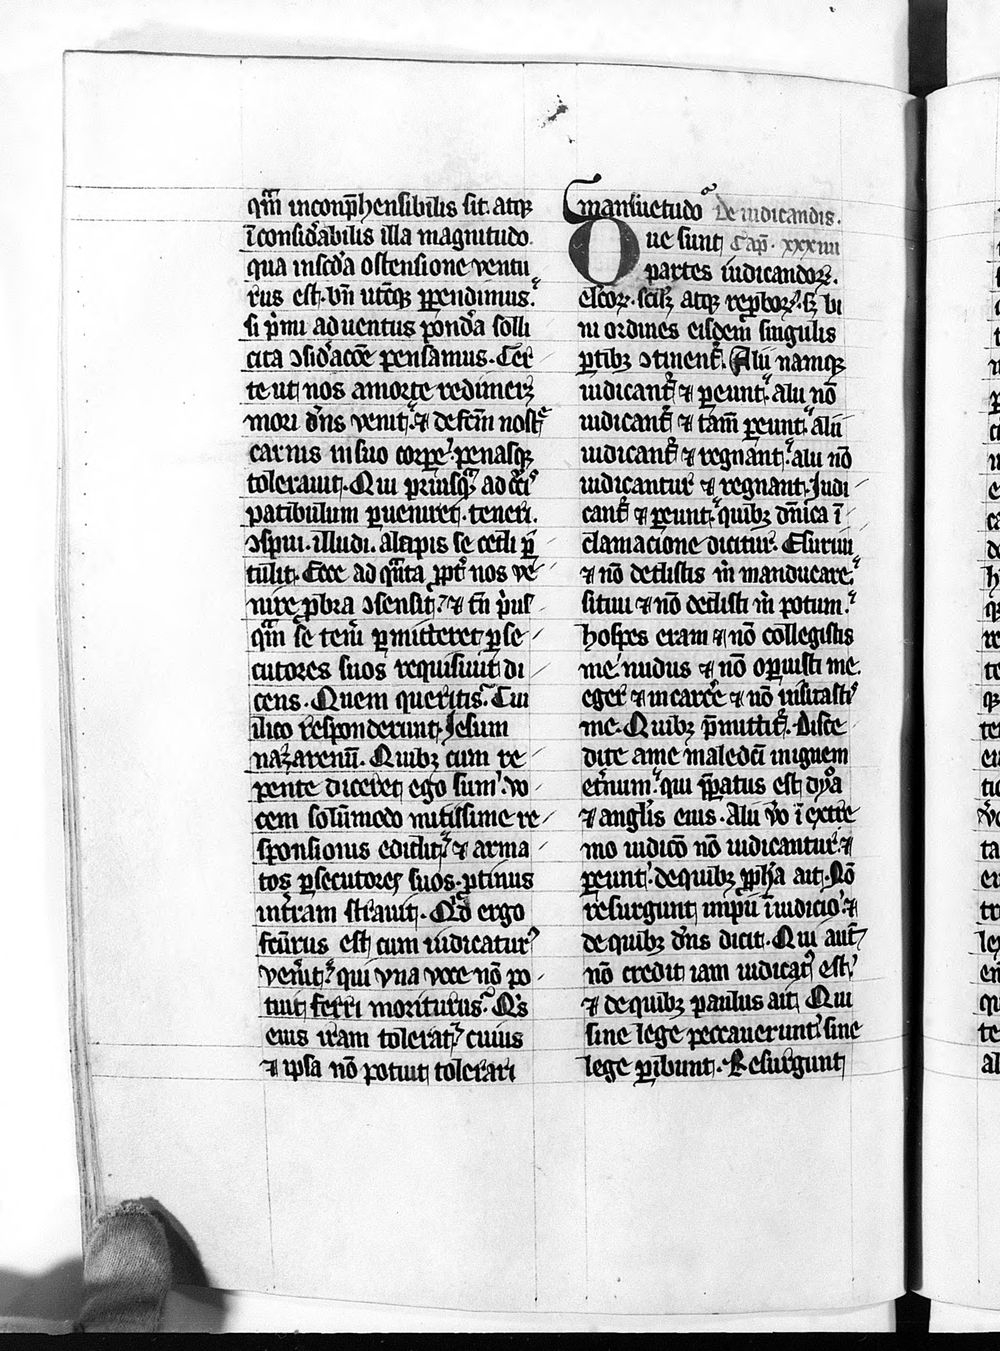 qm̄ inconp̄hensibilis sit. atq
ī consid'abilis illa magnitudo
qua in scd'a ostensione ventu
rus est. bn̄ utcq̄ ꝑpendimus.
si p'mi aduentus pond'a solli
cita ↄsid'acōe pensamus. Cer
te ut nos a morte redimeꝫ
mori dn̄s venit. ⁊ defcm̄ nostͤ
carnis in suo corpe. penasqꝫ
tolerauit. Qui priusqᷓ ad cͨiˢ
patibulum ꝑueniret. teneri.
ↄspui. illudi. alapis se cedi ꝑ
tulit. Ecce ad qn̄ta ꝓpt' nos ve
nire ꝓbra ↄsensit. ⁊ tn̄ p'us
qm̄ se ten'i ꝑmitteret ꝑse
cutores suos requisiuit di
cens. Quem queritis. Cui
ilico responderunt. Jesum
naꝫarenū. Quibꝫ cum re
pente diceret ego sum. vo
cem solūmodo mitissime re
sponsionis edidit. ⁊ arma
tos ꝑsecutores suos. ꝓtinus
in t'ram strauit. Qⁱd ergo
fcūrus est cum iudicatur'
ven'it. qui vna voce nō po
tuit ferri moriturus. Qⁱs
eius iram tolerat. cuius
⁊ ipsa nō potuit tolerari
mansuetudo De iudicandis.
Que sunt Cap̄. xxxiiii
partes iudicandoꝝ.
elcoꝝ. scilꝫ atqꝫ rep̄boꝝ. sꝫ bi
ni ordines eisdem singulis
ꝑtibꝫ ↄtinent'. Alii namqꝫ
iudicant' ⁊ ꝑeunt. alii nō
iudicant' ⁊ tam̄ ꝑeunt. alii
iudicant' ⁊ regnant. alii nō
iudicantur ⁊ regnant. Judi
cant' ⁊ ꝑeunt. quibꝫ dn̄ica ī
clamacione dicitur. Esuriui
⁊ nō dedistis m̄ manducare.
sitiui ⁊ nō dedisti m̄ potum.
hospes eram ⁊ nō collegistis
me. nudus ⁊ nō oꝑuisti me.
eger ⁊ in carc'e ⁊ nō uisitasti'
me. Quibꝫ p̄mittit'. Disce
dite a me maledc̄i in ignem
et'num. qui p̄patus est dyᵒa
⁊ anglis eius. Alii v̄o ī extre
mo iudicō nō iudicantur. ⁊
ꝑeunt. de quibꝫ ꝓpha ait. Nō
resurgunt impii ī iudicio. ⁊
de quibꝫ dn̄s dicit. Qui aut̄
nō credit iam iudicat' est.
⁊ de quibꝫ paulus ait. Qui
sine lege peccauerunt. sine
lege ꝑibunt. Resurgunt